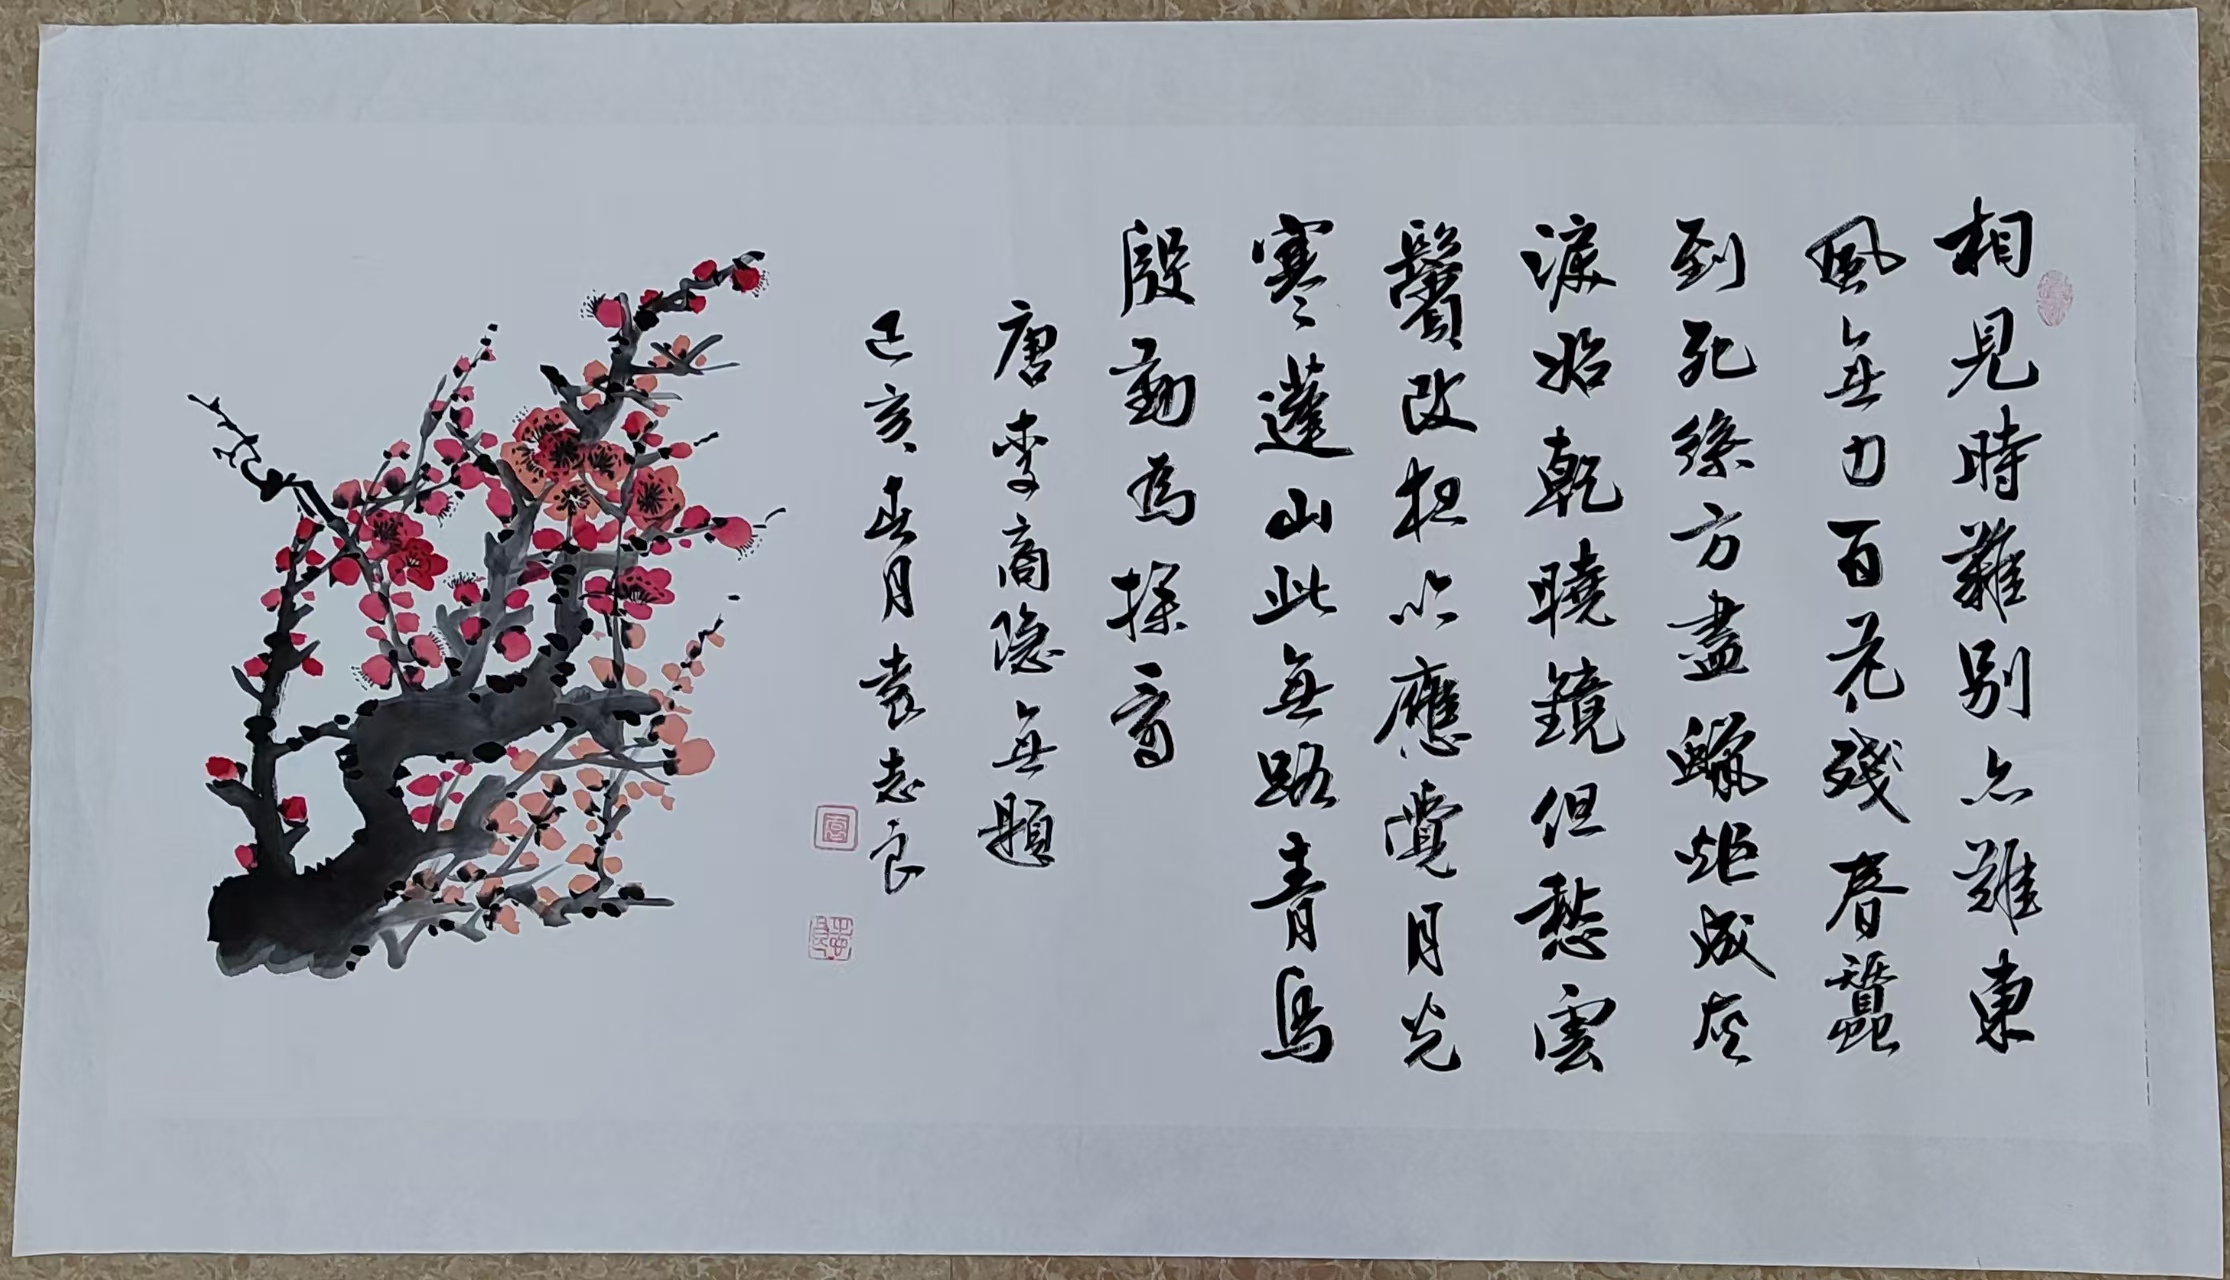 相見時難別亦難東
風無力百花殘春蠶
到死絲方盡蠟炬成灰
淚始乾曉鏡但愁雲
鬢改應覺月光
寒蓬山此無路青鳥
殷勤為探看
唐李商隱無題
己亥春月袁志良